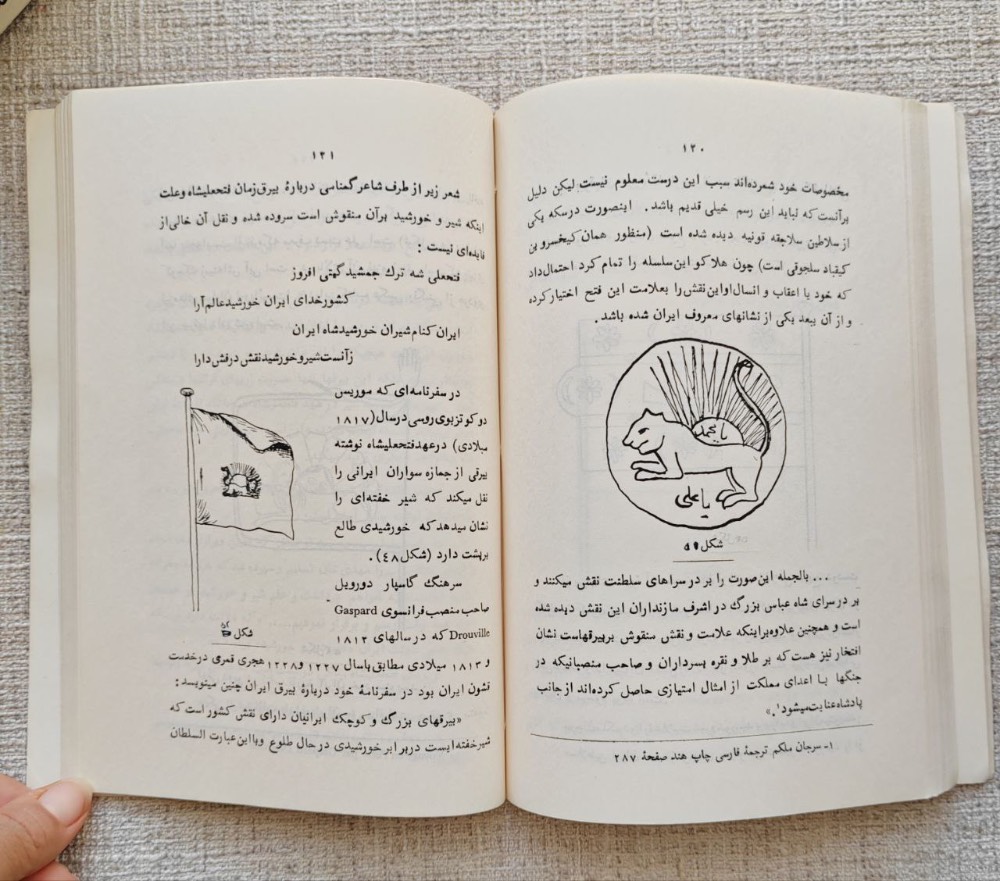 ۱۲۰
مخصوصات خود شمرده‌اند سبب این درست معلوم نیست لیکن دلیل
برآنست که نباید این رسم خیلی قدیم باشد. اینصورت درسکه یکی
از سلاطین سلاجقه قونیه دیده شده است (منظور همان کیخسروبن
کیقباد سلجوقی است) چون هلاکو این سلسله را تمام کرد احتمال داد
که خود یا اعقاب و انسال او این نقش را بعلامت این فتح اختیار کرده
و از آن ببعد یکی از نشانهای معروف ایران شده باشد.
یا محمد
یا علی
شکل ۵۱
... بالجمله این صورت را بر در سراهای سلطنت نقش میکنند و
بر در سرای شاه عباس بزرگ در اشرف مازنداران این نقش دیده شده
است و همچنین علاوه براینکه علامت و نقش منقوش بر بیرقهاست نشان
افتخار نیز هست که بر طلا و نقره بسرداران و صاحب منصبانیکه در
جنگها با اعدای مملکت از امثال امتیازی حاصل کرده‌اند از جانب
پادشاه عنایت میشود۱.»
۱- سرجان ملکم ترجمهٔ فارسی چاپ هند صفحهٔ ۲۸۷
۱۲۱
شعر زیر از طرف شاعر گمنامی دربارهٔ بیرق زمان فتحعلیشاه وعلت
اینکه شیر و خورشید برآن منقوش است سروده شده و نقل آن خالی از
فایده‌ای نیست :
فتحعلی شه ترك جمشید گهتی افروز
کشور خدای ایران خورشید عالم آرا
ایران کنام شیران خورشید شاه ایران
زآنست شیر و خورشید نقش درفش دارا
در سفرنامه‌ای که موریس
دو کوتزبوی روسی در سال (۱۸۱۷
میلادی) در عهد فتحعلیشاه نوشته
بیرقی از جمازه سواران ایرانی را
نقل میکند که شیر خفته‌ای را
نشان میدهد که خورشیدی طالع
برپشت دارد (شکل ۴۸).
سرهنگ گاسپار دورویل
صاحب منصب فرانسوی Gaspard
Drouville که در سالهای ۱۸۱۲
شکل
و ۱۸۱۳ میلادی مطابق باسال ۱۲۲۷ و ۱۲۲۸ هجری قمری درخدمت
قشون ایران بود در سفرنامهٔ خود دربارهٔ بیرق ایران چنین مینویسد:
«بیرقهای بزرگ و کوچک ایرانیان دارای نقش کشور است که
شیر خفته ایست در برابر خورشیدی در حال طلوع و با این عبارت السلطان